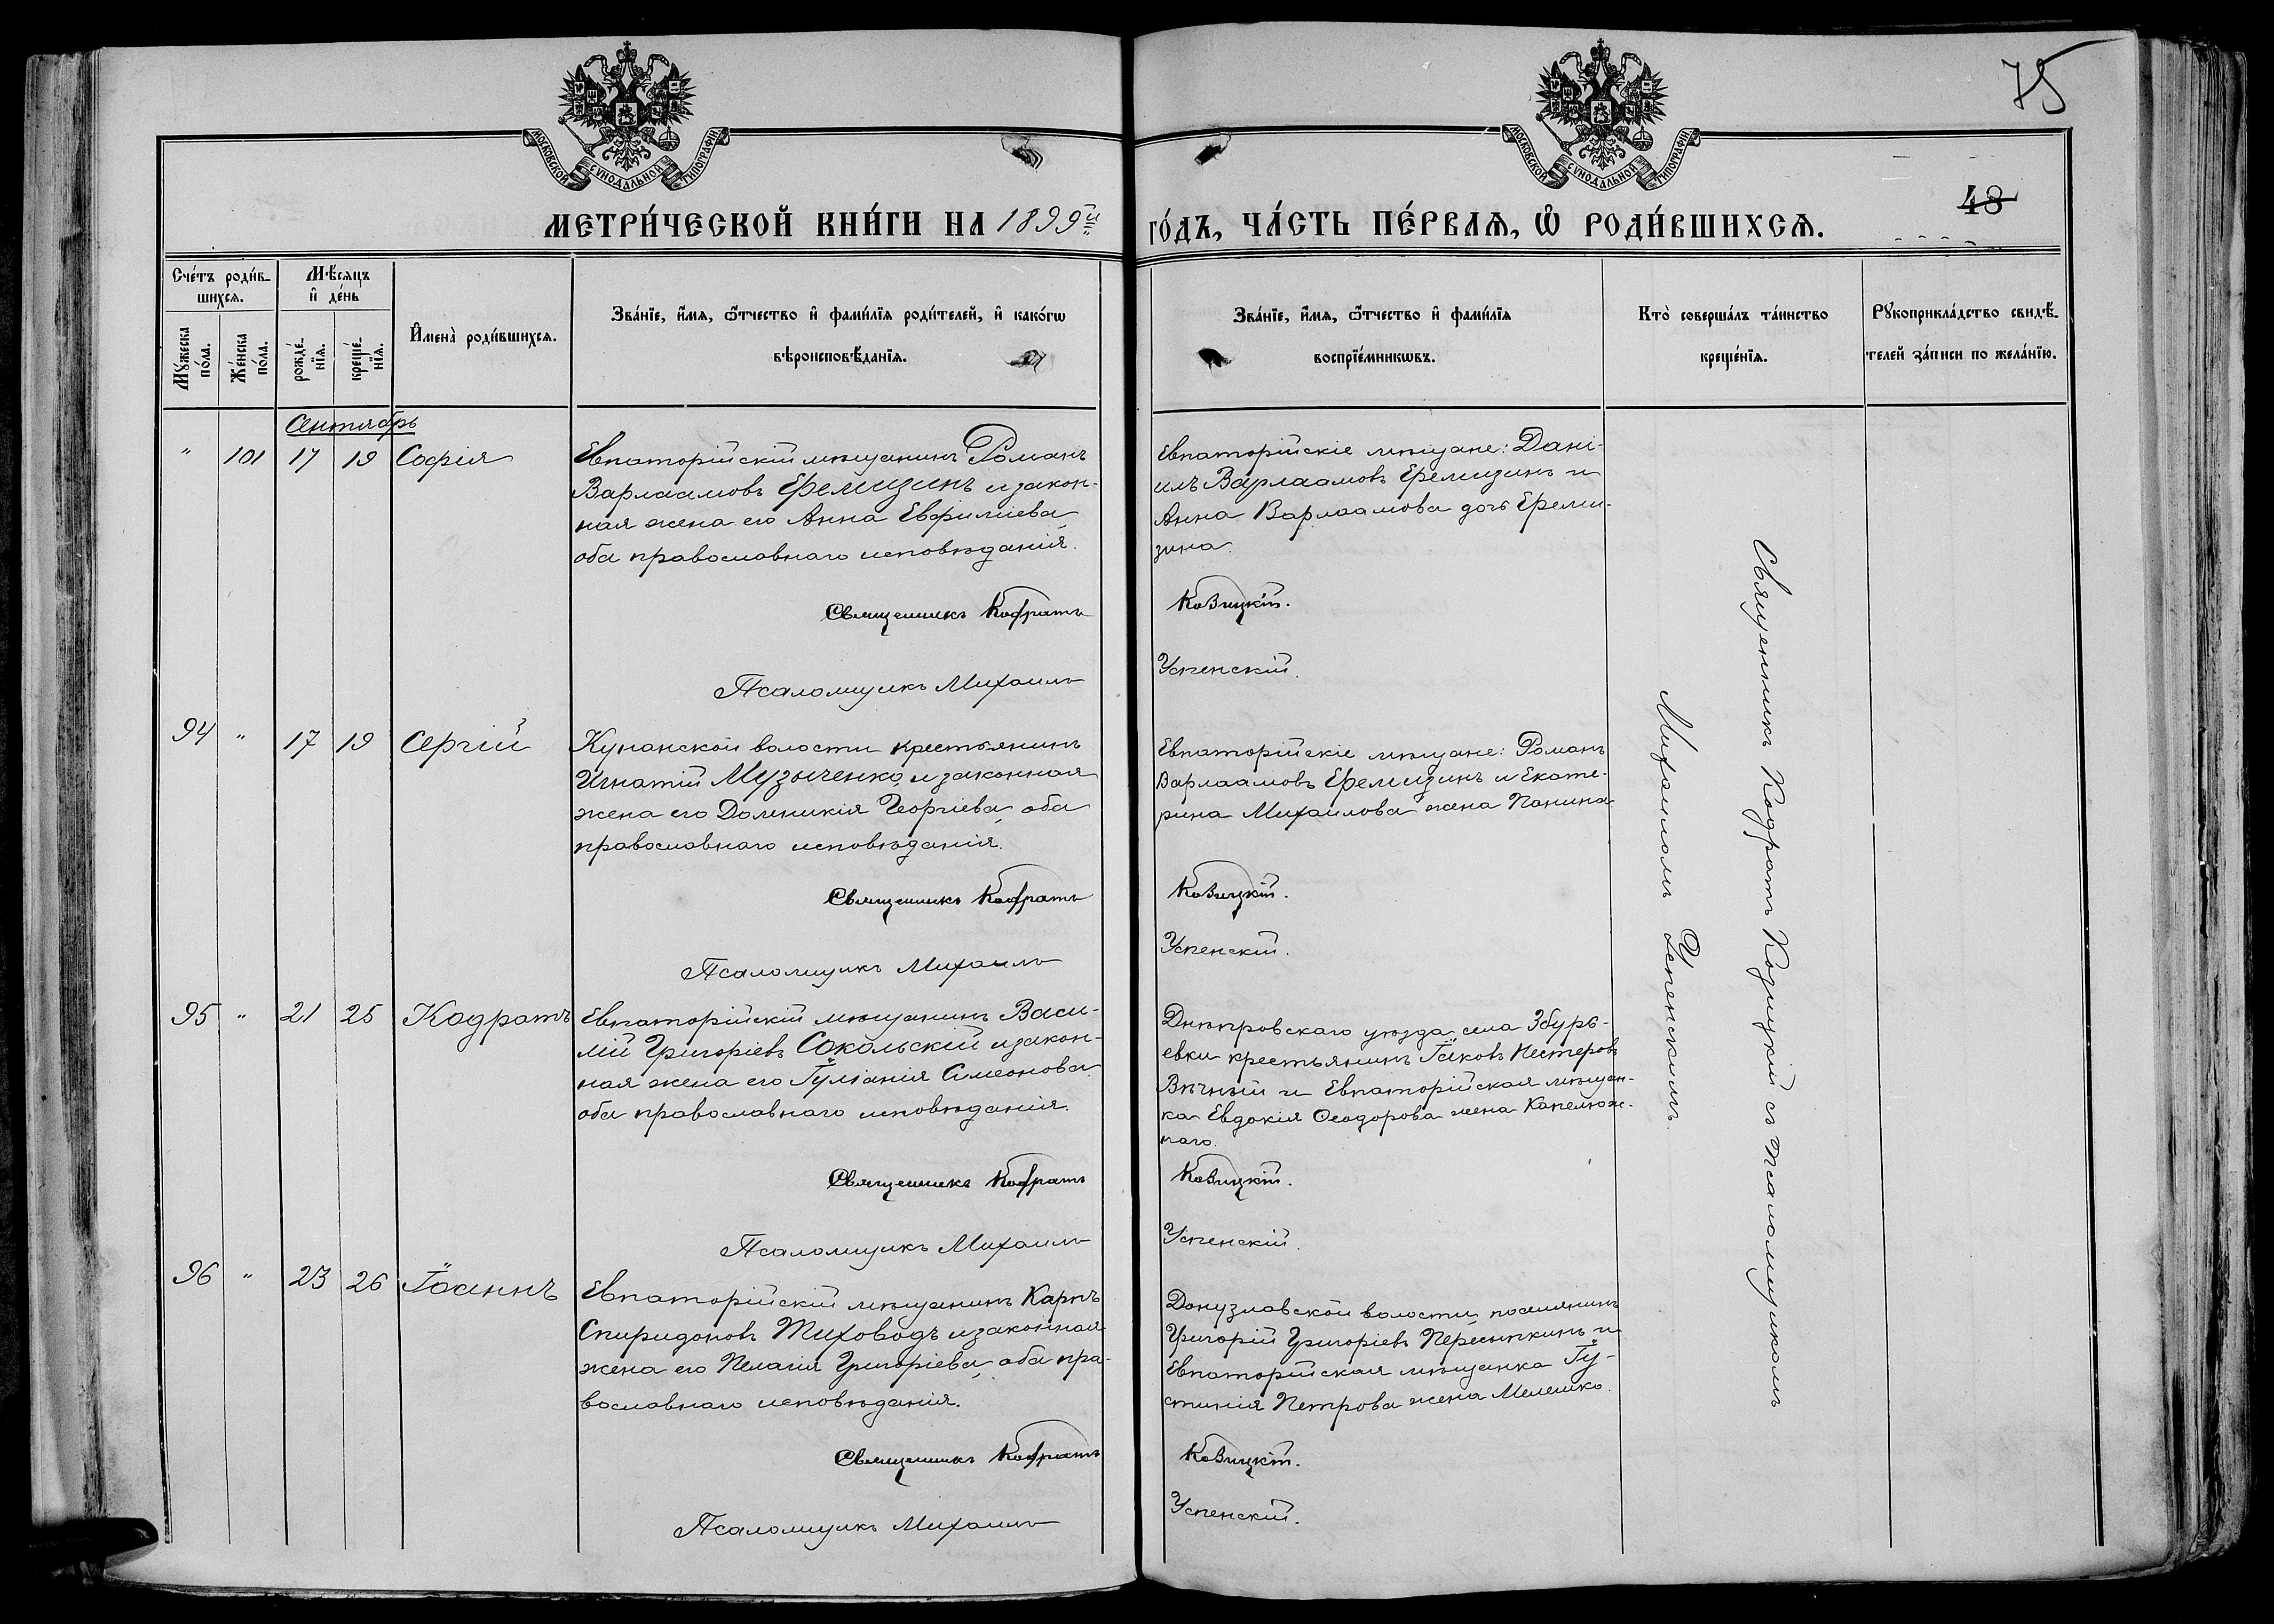 75
МОСКОВСКОЙ СѴНОДАЛЬНОЙ ТИПОГРАФІИ
МОСКОВСКОЙ СѴНОДАЛЬНОЙ ТИПОГРАФІИ
48
МЕТРИ́ЧЕСКОЙ КНИ́ГИ НА 1899й
ГО́ДЪ, ЧА́СТЬ ПЕ́РВАЯ, Ѡ РОДИ́ВШИХСЯ.
Сче́тъ роди́в-
шихся.
Мѣ́сяцъ
и де́нь
Мꙋ́жеска
по́ла.
Же́нска
по́ла.
рожде́-
нїя.
креще́-
нїя.
Имена̀ роди́вшихся.
Зва́нїе, и́мя, ѻ́тчество и фами́лїя роди́телей, и како́гѡ
вѣроисповѣ́данїя.
Зва́нїе, и́мя, ѻ́тчество и фами́лїя
воспрїе́мникѡвъ.
Кто̀ соверша́лъ та́инство
креще́нїя.
Рꙋкоприкла́дство свидѣ́-
телей за́писи по жела́нїю.
Сентябрь
" 101 17 19 Софія
Евпаторійскій мѣщанинъ Романъ
Варлаамовъ Еремизинъ и закон-
ная жена его Анна Евфиміева,
оба православнаго исповѣданія.
Священникъ Кодратъ
Псаломщикъ Михаилъ
Евпаторійскіе мѣщане: Дані-
илъ Варлаамовъ Еремизинъ и
Анна Варлаамова дочь Ереми-
зина.
Козицкій.
Успенскій.
94 " 17 19 Сергій
Кунанской волости крестьянинъ
Игнатій Музыченко, и законная
жена его Домникія Георгіева, оба
православнаго исповѣданія.
Священникъ Кодратъ
Псаломщикъ Михаилъ
Евпаторійскіе мѣщане: Романъ
Варлаамовъ Еремизинъ и Екате-
рина Михаилова жена Панина
Козицкій.
Успенскій.
95 " 21 25 Кодратъ
Евпаторійскій мѣщанинъ Васи-
лій Григоріевъ Сокольскій и закон-
ная жена его Іуліанія Симеонова
оба православнаго исповѣданія.
Священникъ Кодратъ
Псаломщикъ Михаилъ
Днѣпровскаго уѣзда села Збурь-
евки крестьянинъ Іаковъ Нестеровъ
Вѣчный и Евпаторійская мѣщан-
ка Евдокія Ѳеодорова жена Капелюж-
наго.
Козицкій.
Успенскій.
96 " 23 26 Іоаннъ
Евпаторійскій мѣщанинъ Карпъ
Спиридоновъ Тиховодъ и законная
жена его Пелагія Григоріева, оба пра-
вославнаго исповѣданія.
Священникъ Кодратъ
Псаломщикъ Михаилъ
Донузлавской волости, поселянинъ
Григорій Григоріевъ Пересыпкинъ и
Евпаторійская мѣщанка Іу-
стинія Петрова жена Мелешко.
Козицкій.
Успенскій.
Священникъ Кодратъ Козицкій съ псаломщикомъ
Михаиломъ Успенскимъ.